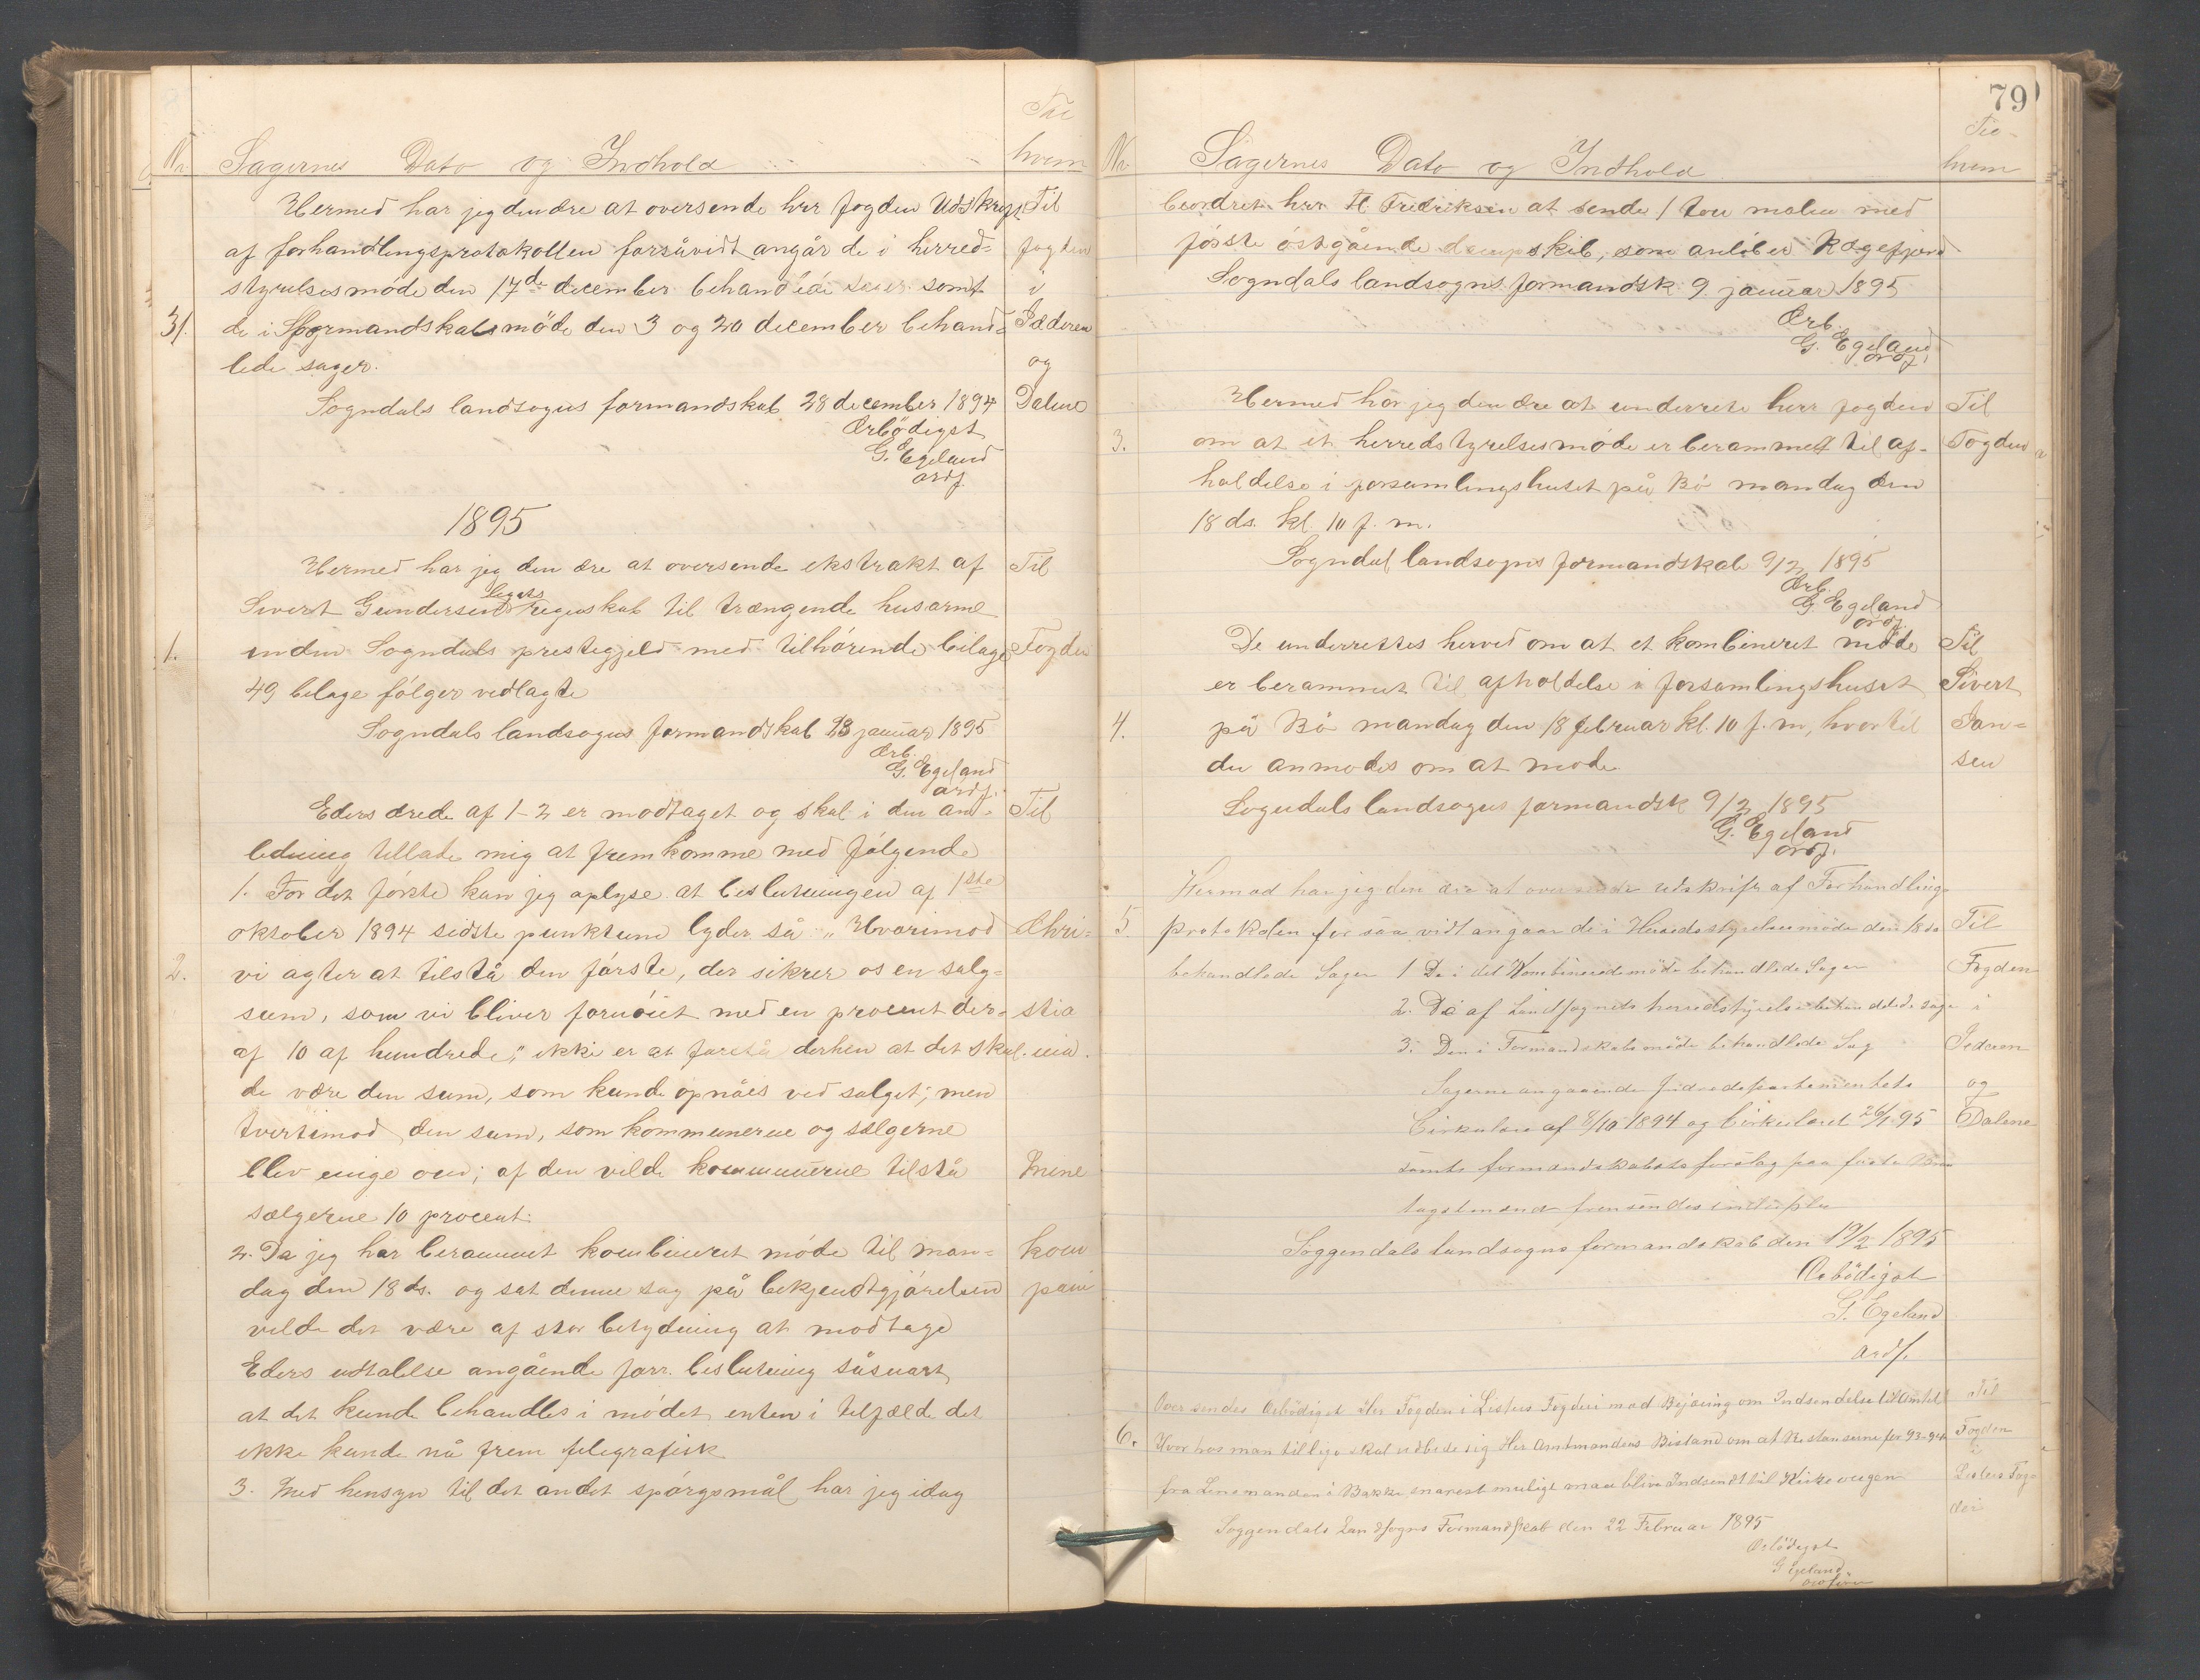 Til
Nr. Sagernes Dato og Indhold hvem
Hermed har jeg den ære at oversende hrr fogden Udskrift Til
af forhandlingsprotokollen forsåvidt angår de i herred- fogden
styrelsesmøde den 17de december behandlede sager samt i
31. de i Formandskabsmøde den 3 og 20 december behand- Jæderen
lede sager. og
Sogndals landsogns formandskab 28 december 1894 Dalene
Ærbødigst
G. Egeland
ordf.
1895
Hermed har jeg den ære at oversende ekstrakt af Til
Sivert Gundersens legats regnskab til trængende husarme
1. inden Sogndals prestegjeld med tilhørende bilage Fogden
49 bilage følger vedlagte
Sogndals landsogns formandskab 23 januar 1895
Ærb.
G. Egeland
ordf.
Eders ærede af 1-2 er modtaget og skal i den an- Til
ledning tillade mig at fremkomme med følgende
1. For det første kan jeg oplyse at beslutningen af 1ste
oktober 1894 sidste punktum lyder så "Hvorimod Chri-
2. vi agter at tilstå den første, der sikrer os en salg-
sum, som vi bliver fornøiet med en procent der- stia
af 10 af hundrede," ikke er at forstå derhen at det skul- nia.
de være den sum, som kunde opnåes ved salget; men
tvertimod den sum, som kommunerne og sælgerne
blev enige om; af den vilde kommunerne tilstå Mine
sælgerne 10 procent.
2. Da jeg har berammet kombineret møde til man- kom
dag den 18 ds. og sat denne sag på bekjendtgjørelsen pani
vilde det være af stor betydning at modtage
Eders udtalelse angående forr. beslutning såsnart
at det kunde behandles i mødet enten i tilfælde det
ikke kunde nå frem telegrafisk
3. Med hensyn til det andet spørgsmål har jeg idag
79
Til
Nr. Sagernes Dato og Indhold hvem
beordret hrr H. Fredriksen at sende 1 ton malm med
første østgående dampskib, som anløber Rægefjord
Sogndals landsogns formandsk. 9. januar 1895
Ærb.
G. Egeland
ordf.
Hermed har jeg den ære at underrete herr fogden Til
3. om at et herredstyrelsesmøde er berammet til af- Fogden
holdelse i forsamlingshuset på Bø mandag den
18 ds. kl 10 f. m.
Sogndal landsogns formandskab 9/2 1895
Ærb.
G. Egeland
ordf.
De underrettes herved om at et kombineret møde Til
er berammet til afholdelse i forsamlingshuset Sivert
4. på Bø mandag den 18 februar kl. 10 f. m, hvortil Jan-
du anmodes om at møde. sen
Sogndals landsogns formandsk 9/2 1895
G. Egeland
ordf.
Hermed har jeg den ære at oversende udskrift af Forhandlings
5. protokolen for saa vidt angaar de i Herredsstyrelsesmøde den 18 ds Til
behandlede Sager 1 De i det Kombinerede møde behandlede Sager Fogden
2. De af Landsognets herredstyrelse behandlede sager i
3. Den i Formandskabsmøde behandlede Sag Jederen
Sagerne angaaende Indredepartementets og
Cirkulære af 8/10 1894 og Cirkulæret 26/1 95 Dalene
samt formandskabets forslag paa
fremsendes
Soggendals landsogns formandskab den 19/2 1895
Ærbødigst
G. Egeland
Ordf.
Oversendes Ærbødigst Hr Fogden i Listers Fogderi med Begjæring om Indsendelse til Amtet Til
6. Hvorhos man tillige skal udbede sig Hr. Amtmandens Bistand om at Restanserne for 93-94 Fogden
fra Lensmanden i Bakke snarest muligt maa blive Indsendt til Kirkevergen Listers Fog-
deri
Soggendals Landsogns Formandskab den 22 Februar 1895
Ærbødigst
G Egeland
ordfører